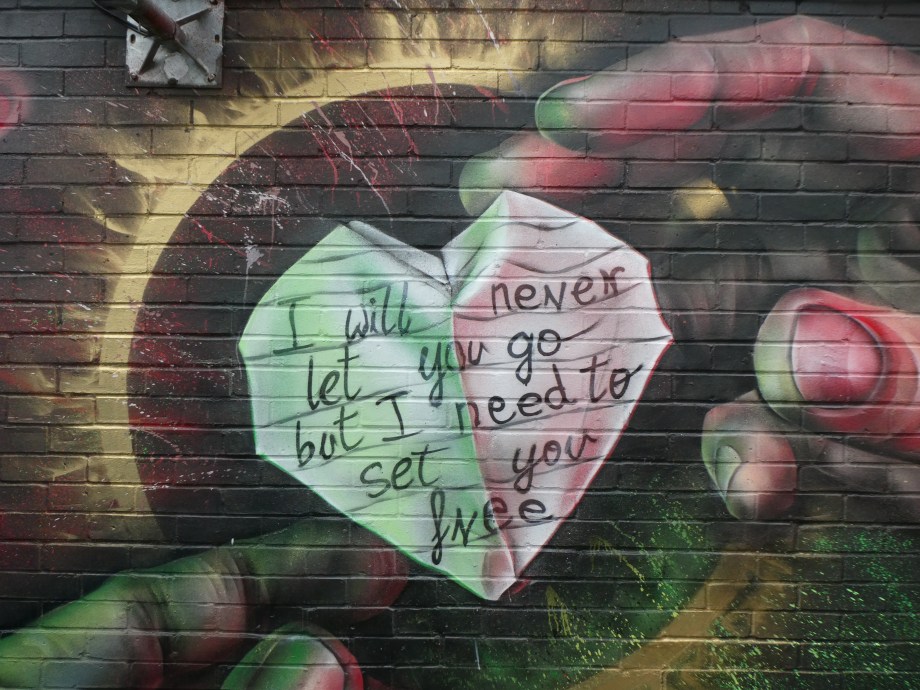 I will never
let you go
but I need to
set you
free